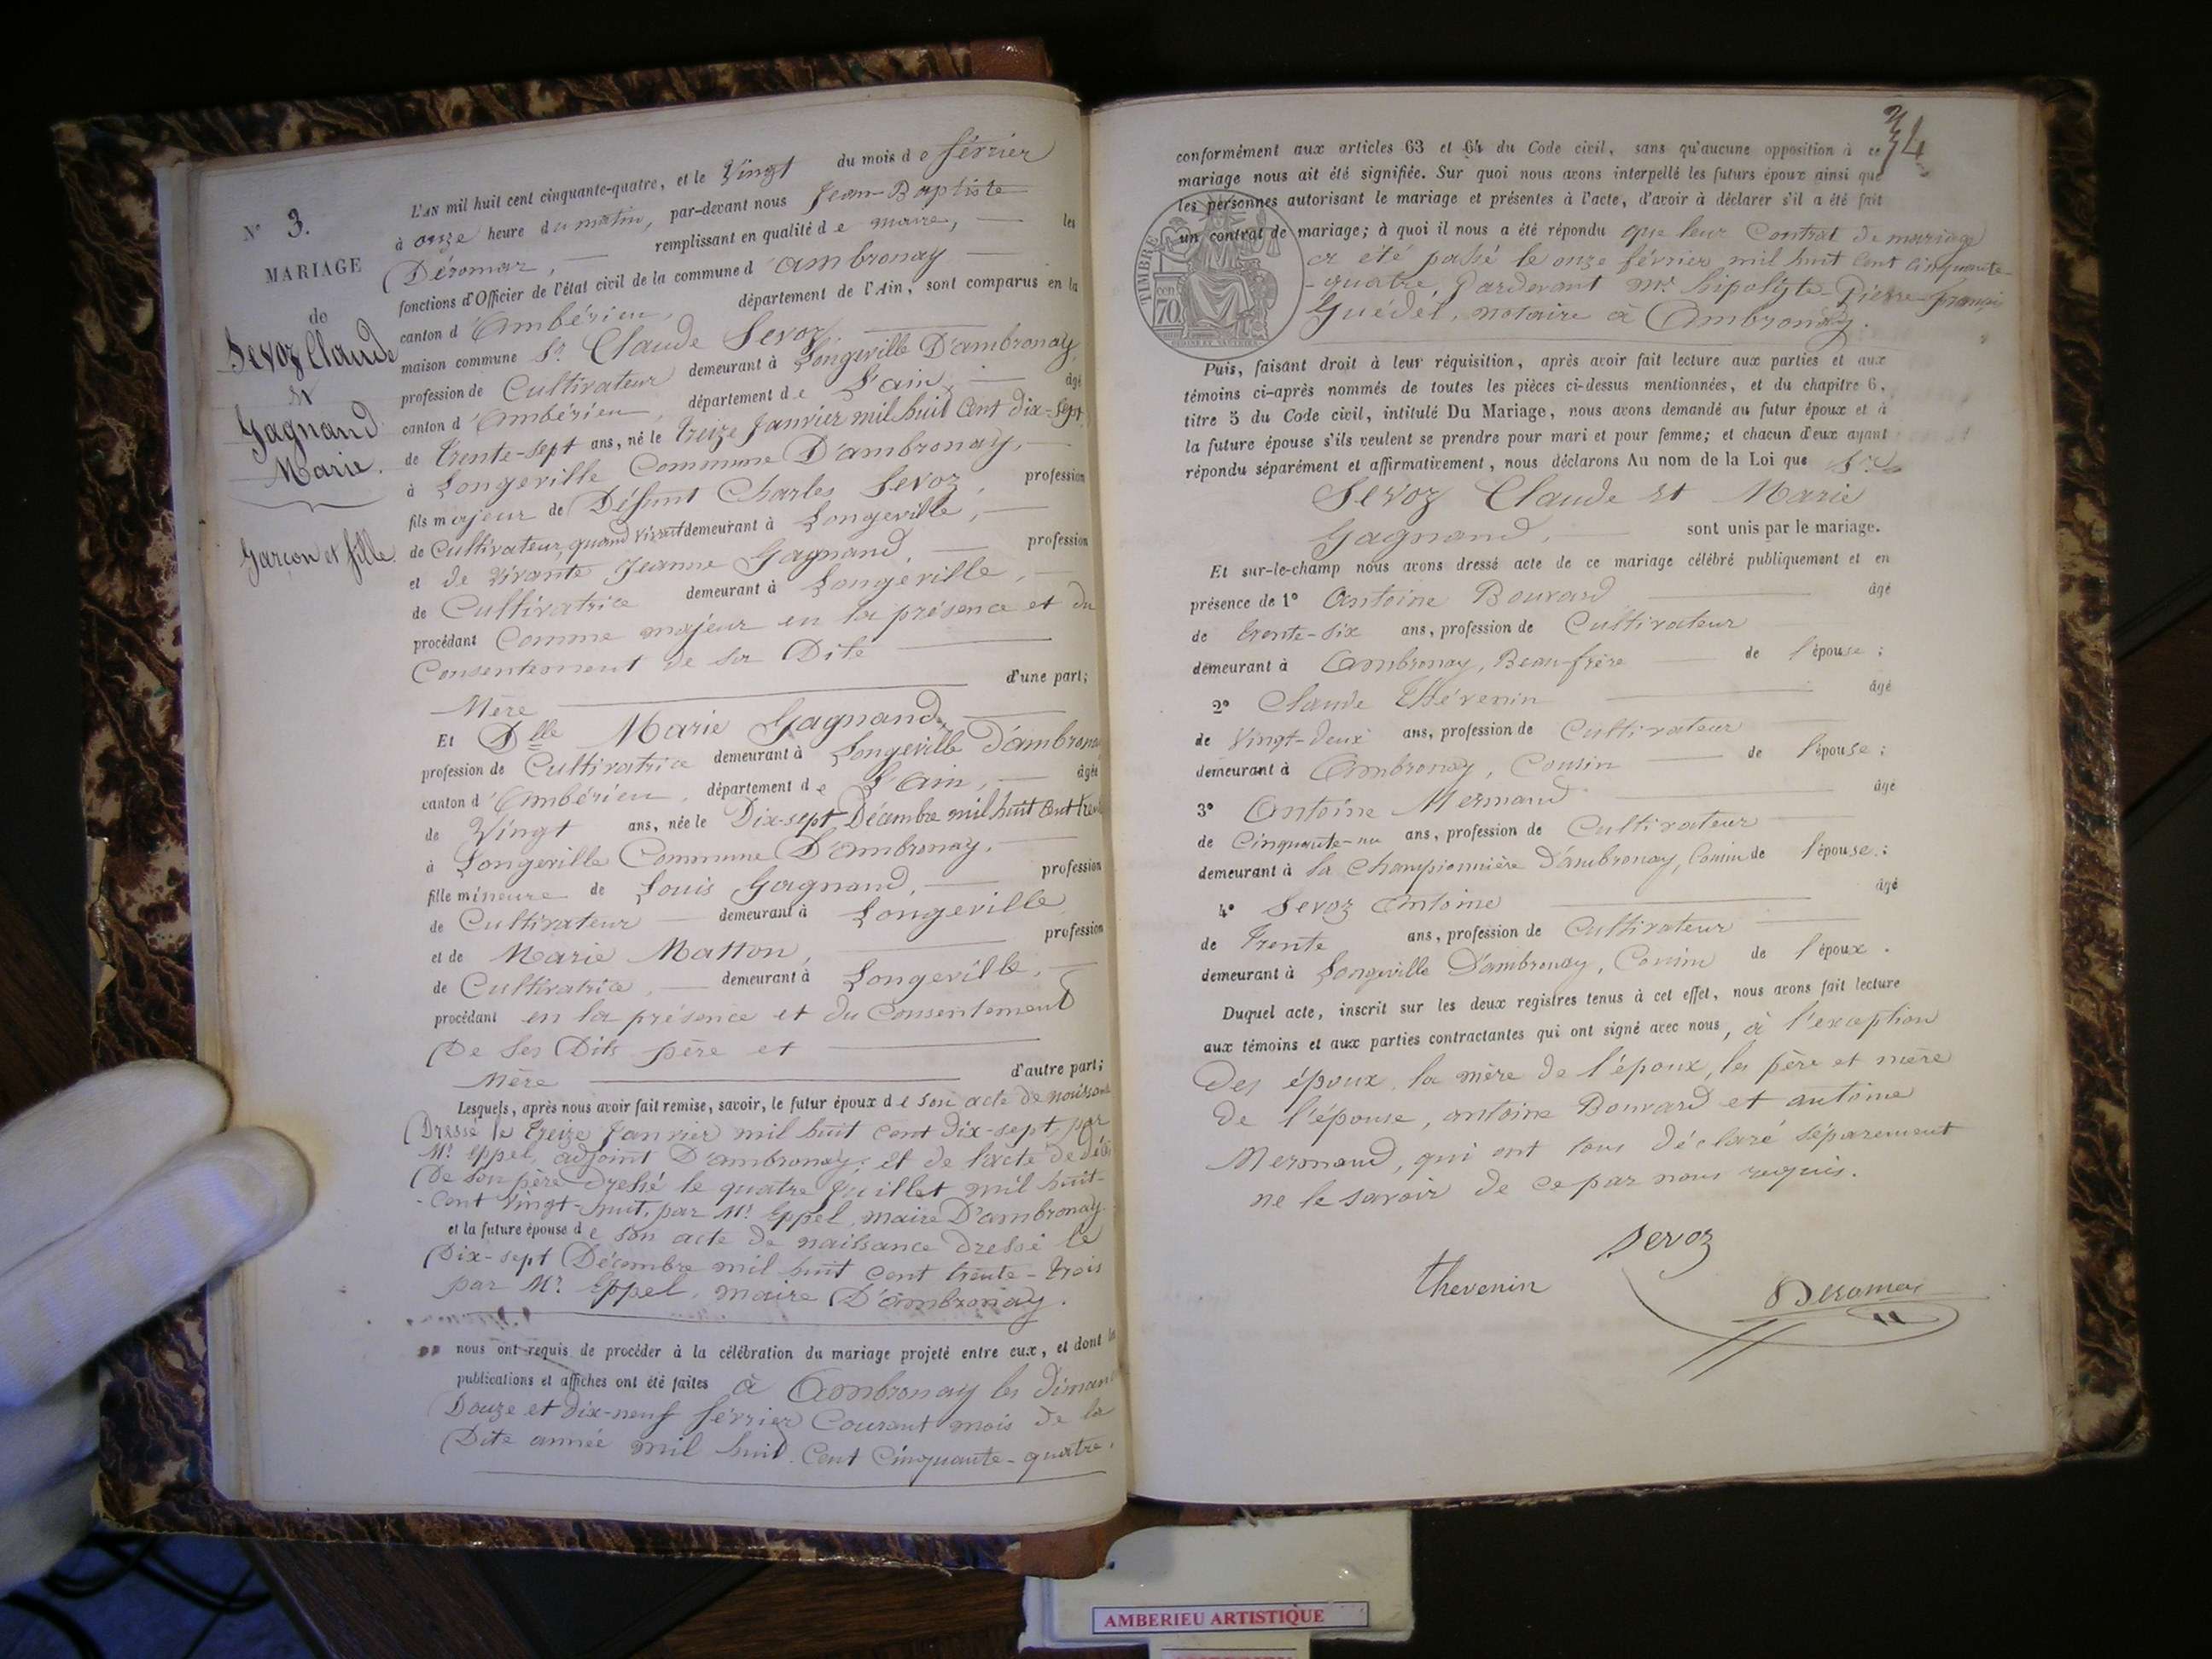 N° 3.
MARIAGE
de
Sevoz Claude
et
Gagnand
Marie.
Garçon et fille.
L'AN mil huit cent cinquante-quatre, et le Vingt du mois de février
à onze heure du matin, par-devant nous Jean-Baptiste
Déromas, remplissant en qualité de maire, les
fonctions d'Officier de l'état civil de la commune d'ambronay
canton d'Ambérieu, département de l'Ain, sont comparus en la
maison commune Sr. Claude Sevoz
profession de Cultivateur demeurant à Longeville D'ambronay,
canton d'Ambérieu, département de L'ain, âgé
de trente-sept ans, né le treize Janvier mil huit Cent dix-sept
à Longeville Commune D'ambronay,
fils majeur de Défunt Charles Sevoz, profession
de Cultivateur, quand vivait demeurant à Longeville,
et de vivante Jeanne Gagnand, profession
de Cultivatrice demeurant à Longeville,
procédant Comme majeur en la présence et du
Consentement de sa Dite
Mère d'une part;
Et Dlle Marie Gagnand,
profession de Cultivatrice demeurant à Longeville D'ambronay
canton d'Ambérieu, département de L'ain, âgée
de Vingt ans, née le Dix-sept Décembre mil huit Cent
à Longeville Commune D'ambronay,
fille mineure de Louis Gagnand, profession
de Cultivateur demeurant à Longeville
et de Marie Matton, profession
de Cultivatrice, demeurant à Longeville,
procédant en la présence et du Consentement
De ses Dits père et
Mère d'autre part;
Lesquels, après nous avoir fait remise, savoir, le futur époux de son acte de
Dressé le treize Janvier mil huit Cent Dix-sept, par
Mr. Eppel, adjoint D'ambronay; et de l'acte de
De son père dressé le quatre Juillet mil huit-
-Cent vingt-huit, par Mr. Eppel, maire D'ambronay.
et la future épouse de son acte de naissance dressé le
Dix-sept Décembre mil huit Cent trente-trois
par Mr. Eppel, maire D'ambronay.
nous ont requis de procéder à la célébration du mariage projeté entre eux, et dont les
publications et affiches ont été faites à Ambronay les
Douze et dix-neuf février Courant mois de la
Dite année mil huit Cent Cinquante-quatre,
34
conformément aux articles 63 et 64 du Code civil, sans qu'aucune opposition à ce
mariage nous ait été signifiée. Sur quoi nous avons interpellé les futurs époux ainsi que
les personnes autorisant le mariage et présentes à l'acte, d'avoir à déclarer s'il a été fait
un contrat de mariage; à quoi il nous a été répondu que leur Contrat de mariage
a été passé le onze février mil huit Cent Cinquante-
-quatre, Pardevant Me. hipolyte-Pierre-françois
Guédel, notaire à Ambronay.
TIMBRE
70
Puis, faisant droit à leur réquisition, après avoir fait lecture aux parties et aux
témoins ci-après nommés de toutes les pièces ci-dessus mentionnées, et du chapitre 6,
titre 5 du Code civil, intitulé Du Mariage, nous avons demandé au futur époux et à
la future épouse s'ils veulent se prendre pour mari et pour femme; et chacun d'eux ayant
répondu séparément et affirmativement, nous déclarons Au nom de la Loi que
Sevoz Claude et Marie
Gagnand, sont unis par le mariage.
Et sur-le-champ nous avons dressé acte de ce mariage célébré publiquement et en
présence de 1° Antoine Bouvard âgé
de trente-six ans, profession de Cultivateur
demeurant à Ambronay, Beau-frère de l'épouse;
2° Claude Thévenin âgé
de Vingt-deux ans, profession de Cultivateur
demeurant à Ambronay, Cousin de l'épouse;
3° Antoine Mermand âgé
de Cinquante-un ans, profession de Cultivateur
demeurant à la Championnière D'ambronay, Cousin de l'épouse;
4° Sevoz Antoine âgé
de Trente ans, profession de Cultivateur
demeurant à Longeville D'ambronay, Cousin de l'époux.
Duquel acte, inscrit sur les deux registres tenus à cet effet, nous avons fait lecture
aux témoins et aux parties contractantes qui ont signé avec nous, à l'exception
Des époux, la mère de l'époux, les père et mère
de l'épouse, antoine Bouvard et antoine
Mermand, qui ont tous déclaré séparement
ne le savoir de ce par nous requis.
Sevoz
thevenin
Deromas
AMBERIEU ARTISTIQUE